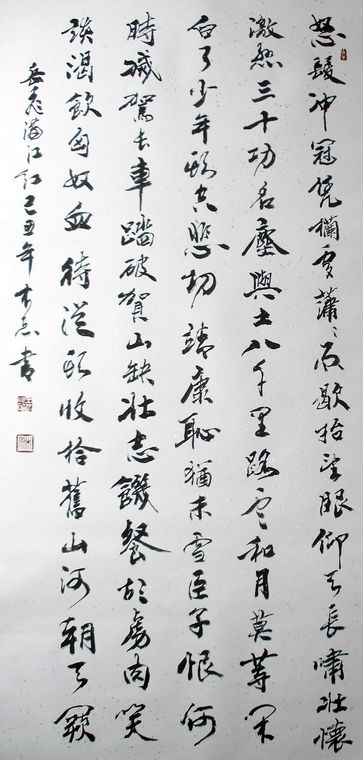 怒髮冲冠凭欄處瀟〻雨歇抬望眼仰天長嘯壯懷
激烈三十功名塵與土八千里路雲和月莫等闲
白了少年頭空悲切靖康恥猶未雪臣子恨何
時滅駕長車踏破賀山缺壯志饑餐胡虜肉笑
談渴飲匈奴血待從頭收拾舊山河朝天闕
岳飛滿江紅己丑年木志書